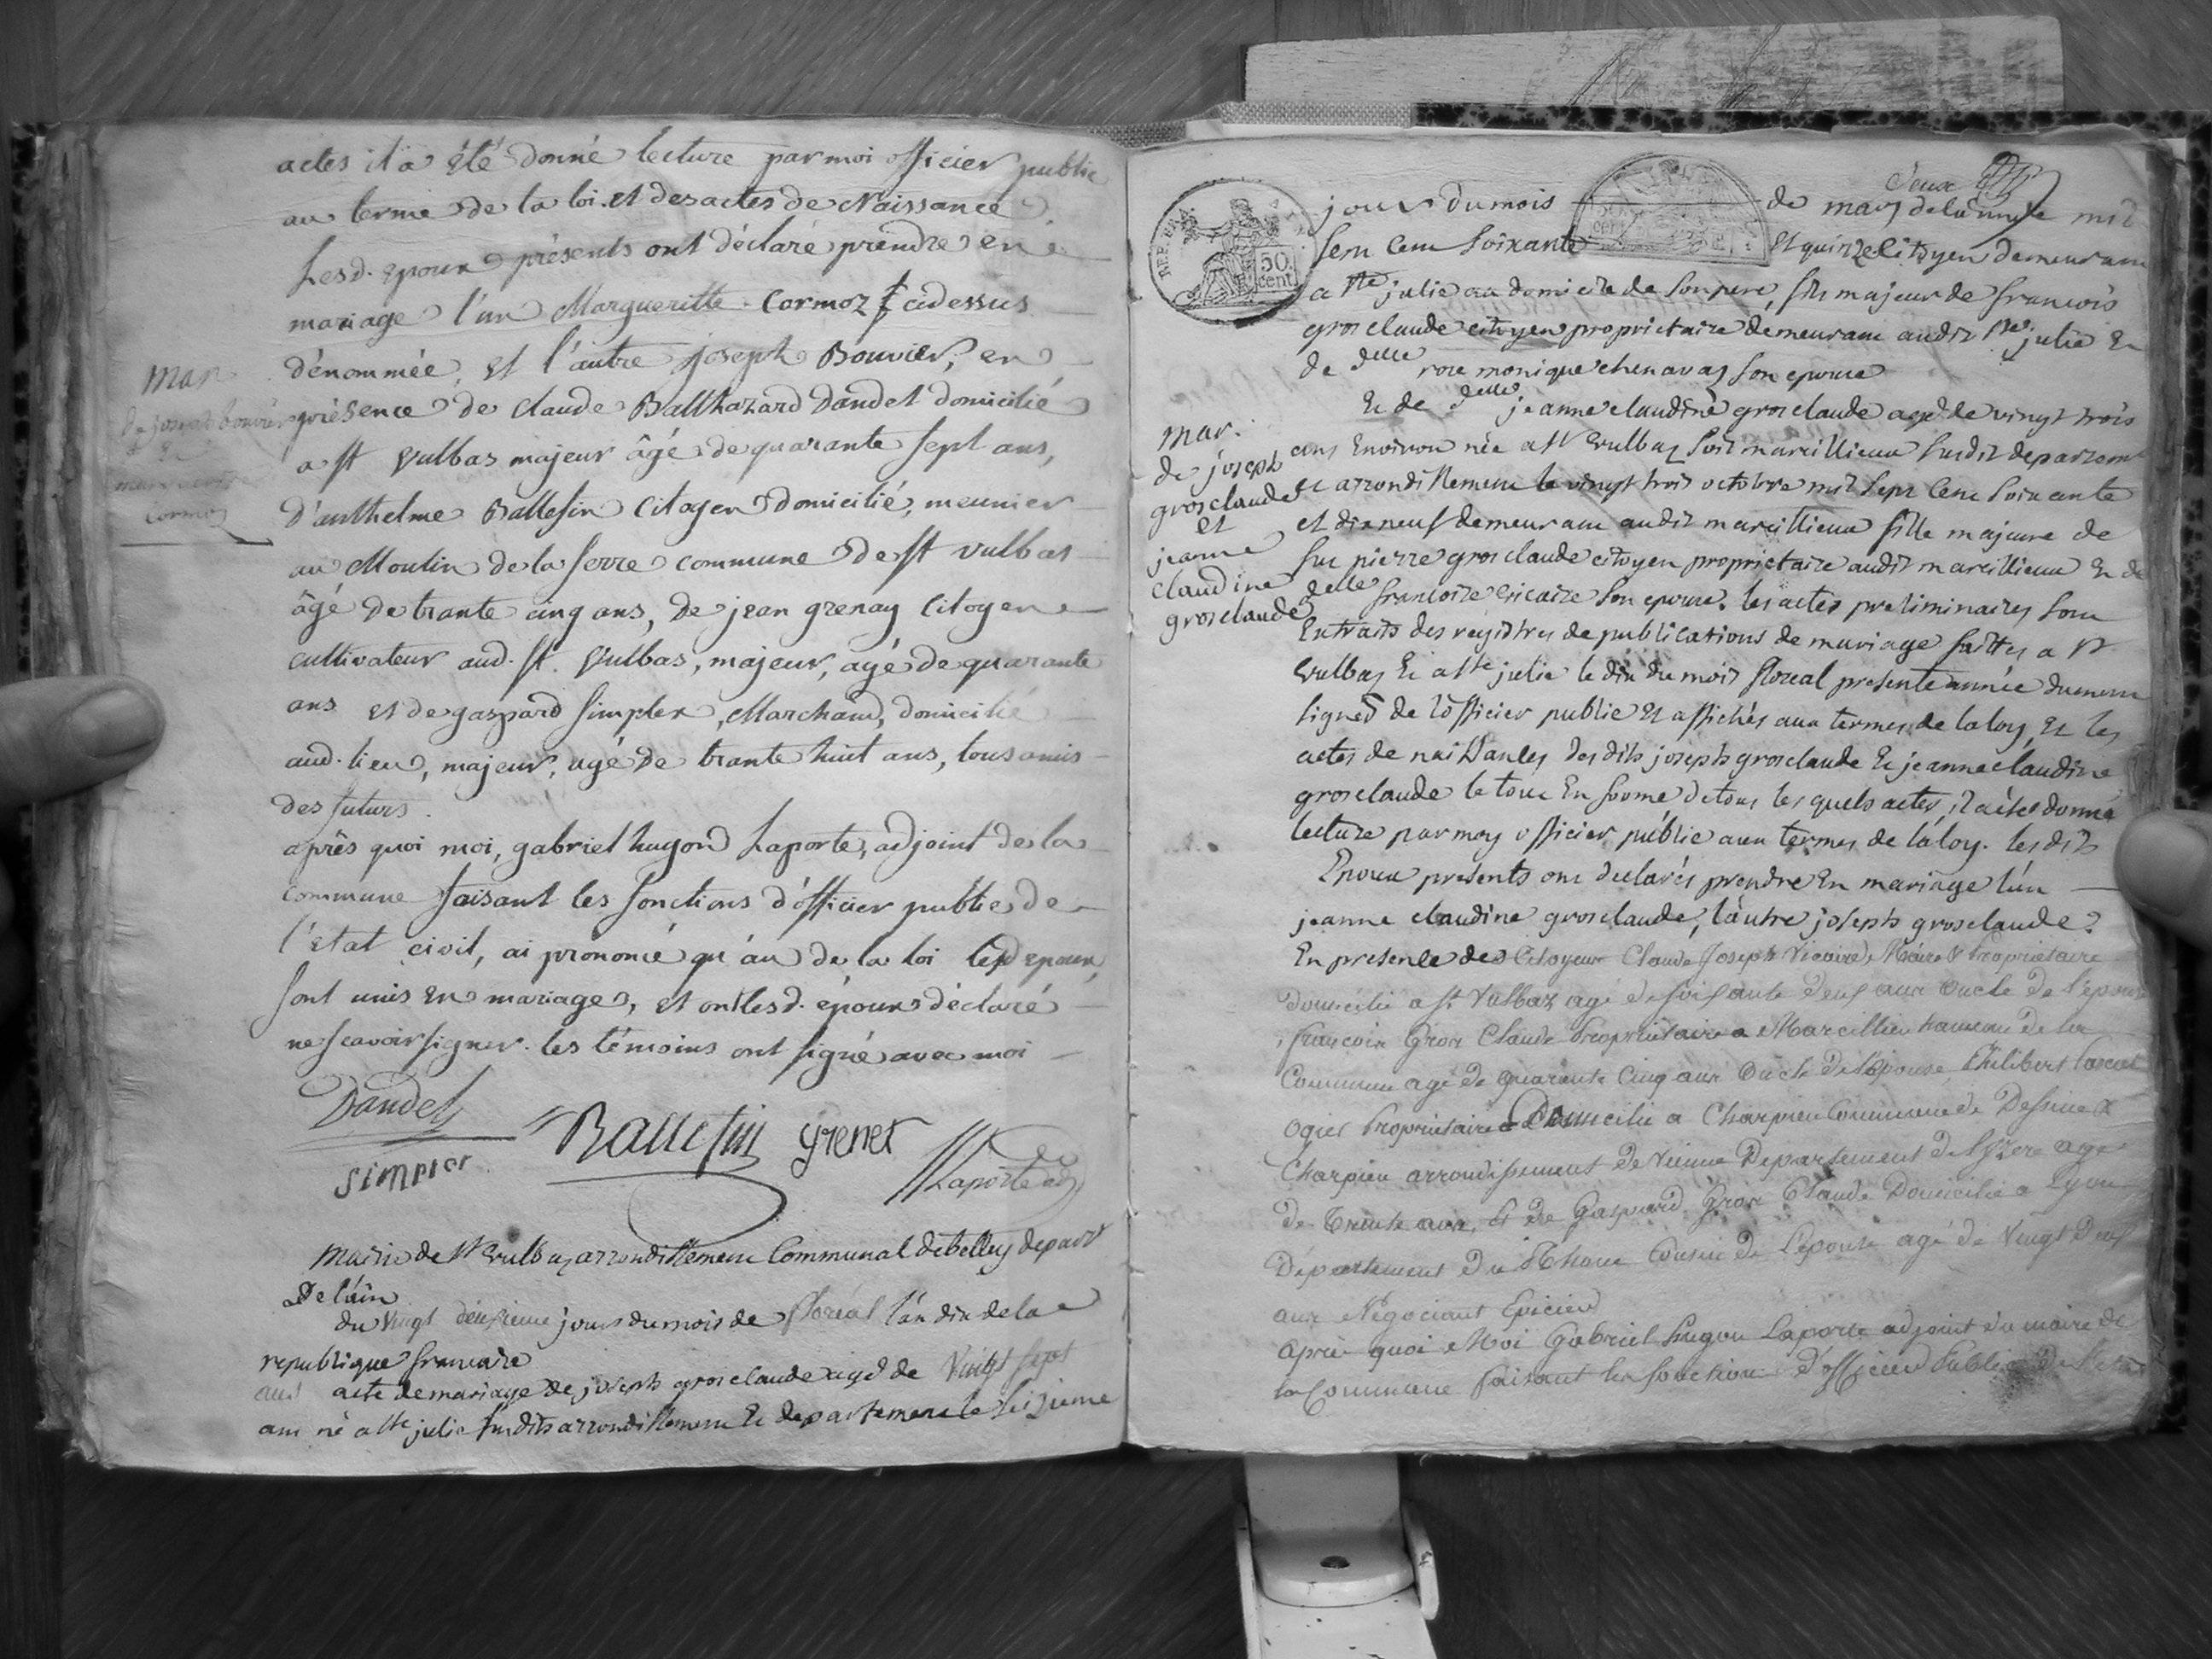 actes il a été donné lecture par moi officier public
au terme de la loi. et des actes de Naissance
Lesd. epoux présents ont déclaré prendre en
mariage l'un Margueritte Cormoz cidessus
dénommée, et l'autre joseph Bouvier, en
présence de Claude Balthazard Dandel domicilié
a st Vulbas majeur âgé de quarante sept ans,
d'anthelme Ballefin Citoyen domicilié, meunier
au Moulin de la serre commune de st Vulbas
âgé de trante cinq ans, de jean grenay Citoyen
cultivateur aud. st. Vulbas, majeur, agé de quarante
ans et de gaspard simpler, Marchand, domicilié
aud. lieu, majeur, agé de trante huit ans, tous amis
des futurs.
après quoi moi, gabriel hugon Laporte, adjoint de la
commune faisant les fonctions d'officier public de
l'état civil, ai prononcé qu'au de la loi lesd epoux,
sont unis en mariage, et ont lesd. époux déclaré
ne scavoir signer. les témoins ont signé avec moi
mar
de joseph bouvier
Cormoz
Dandel
Ballefin grener
simpler
Laporte adj
Mairie de st Vulbaz arrondissement Communal de belley depart
De l'ain
du vingt deuxieme jours du mois de floréal l'an dix de la
republique francaise
acte de mariage de joseph grosclaude agé de vingt sept
ans né a ste julie susdits arrondissement et departement le seizieme
REP. FRA.
50 cent
deux
jours du mois de mars de l'annee mil
sept cent soixante et quinze citoyen demeurant
a ste julie au domicile de son pere, fils majeur de francois
grosclaude citoyen proprietaire demeurant audit ste julie et
de delle rose monique chenavaz son epouse
Et de delle jeanne claudine grosclaude agee de vingt trois
ans environ née a st vulbaz soit marcillieux susdit departemt
et arrondissement le vingt trois octobre mil sept cent soixante
et dix neuf demeurant audit marcillieux fille majeure de
feu pierre grosclaude citoyen proprietaire audit marcillieux et de
delle francoise vicaire son epouse. les actes preliminaires sont
Extraits des registres de publications de mariage faittes a st
vulbaz et a ste julie le dix du mois floreal presente année
signés de l'officier public et affichés aux termes de la loy, et les
actes de naissances desdits joseph grosclaude et jeanne claudine
grosclaude le tout en forme de tous les quels actes, il a été donné
lecture par moy officier public aux termes de la loy. les dits
Epoux presents ont declarés prendre en mariage l'un
jeanne claudine grosclaude, l'autre joseph grosclaude.
En presence des Citoyens Claude Joseph Vicaire, Maire & Proprietaire
domicilié a st Vulbaz agé de soixante deux ans oncle de l'epouse
, francois Gros Claude Propriétaire a Marcillieu hameau de la
Commune agé de quarante cinq ans oncle de l'epouse, Philibert
ogier Propriétaire Domicilié a Charpieu Commune de Dessine &
Charpieu arrondissement de Vienne Departement de l'Izere agé
de trente ans, et de Gaspard Gros Claude Domicilié a Lyon
Département du Rhone Cousin de l'epouse agé de Vingt Deux
ans Négociant Epicier
après quoi Moi Gabriel hugon Laporte adjoint du maire de
la Commune faisant les fonctions d'officier Public de l'etat
mar.
de joseph
grosclaude
et
jeanne
claudine
grosclaude